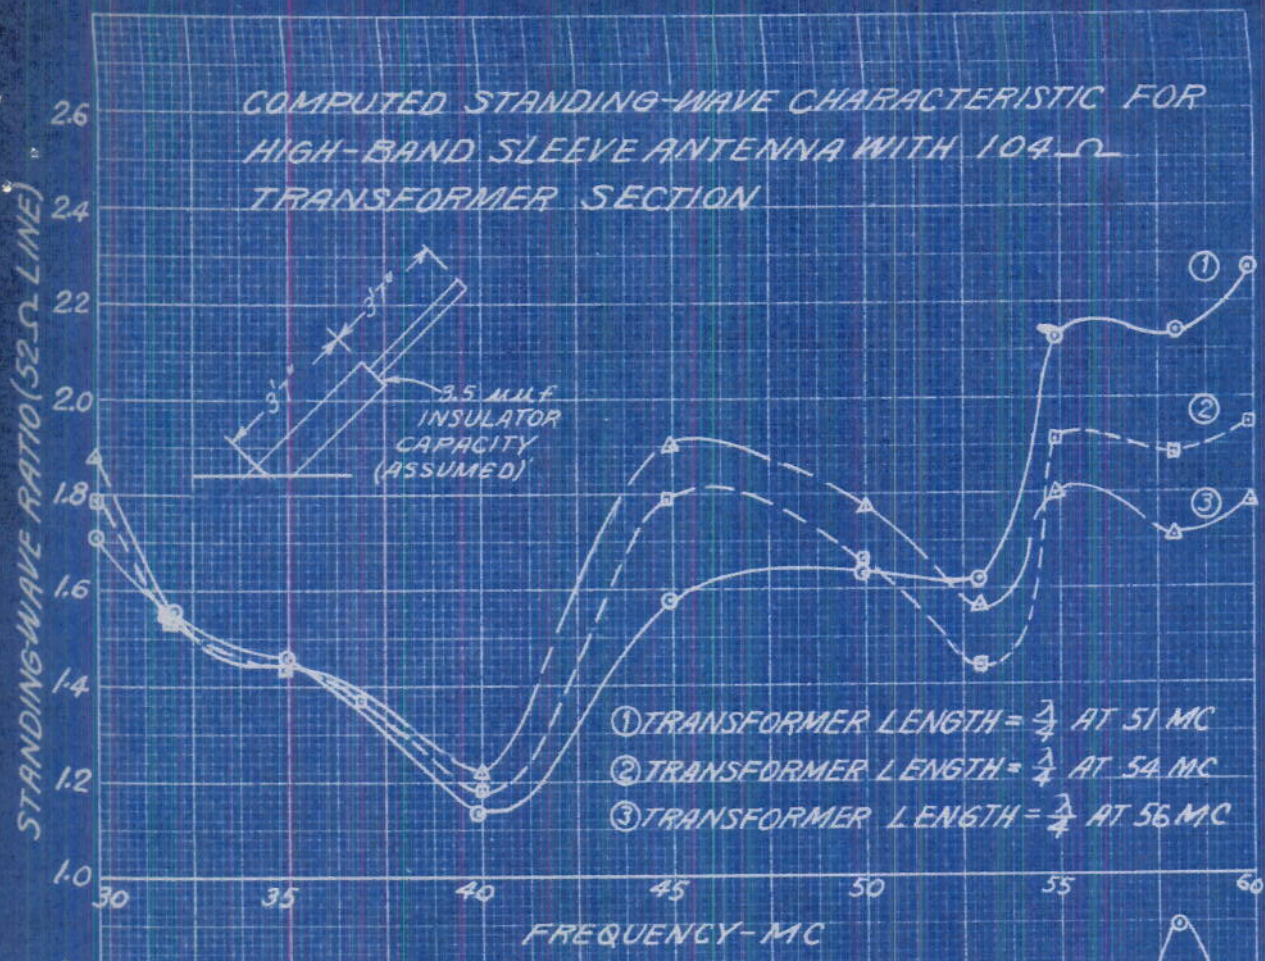 COMPUTED STANDING-WAVE CHARACTERISTIC FOR
HIGH-BAND SLEEVE ANTENNA WITH 104 Ω
TRANSFORMER SECTION
STANDING-WAVE RATIO (52 Ω LINE)
2.6
2.4
2.2
2.0
1.8
1.6
1.4
1.2
1.0
3'7"
3.5 μμf
INSULATOR
CAPACITY
(ASSUMED)
①
②
③
① TRANSFORMER LENGTH = λ/4 AT 51 MC
② TRANSFORMER LENGTH = λ/4 AT 54 MC
③ TRANSFORMER LENGTH = λ/4 AT 56 MC
30 35 40 45 50 55 60
FREQUENCY-MC